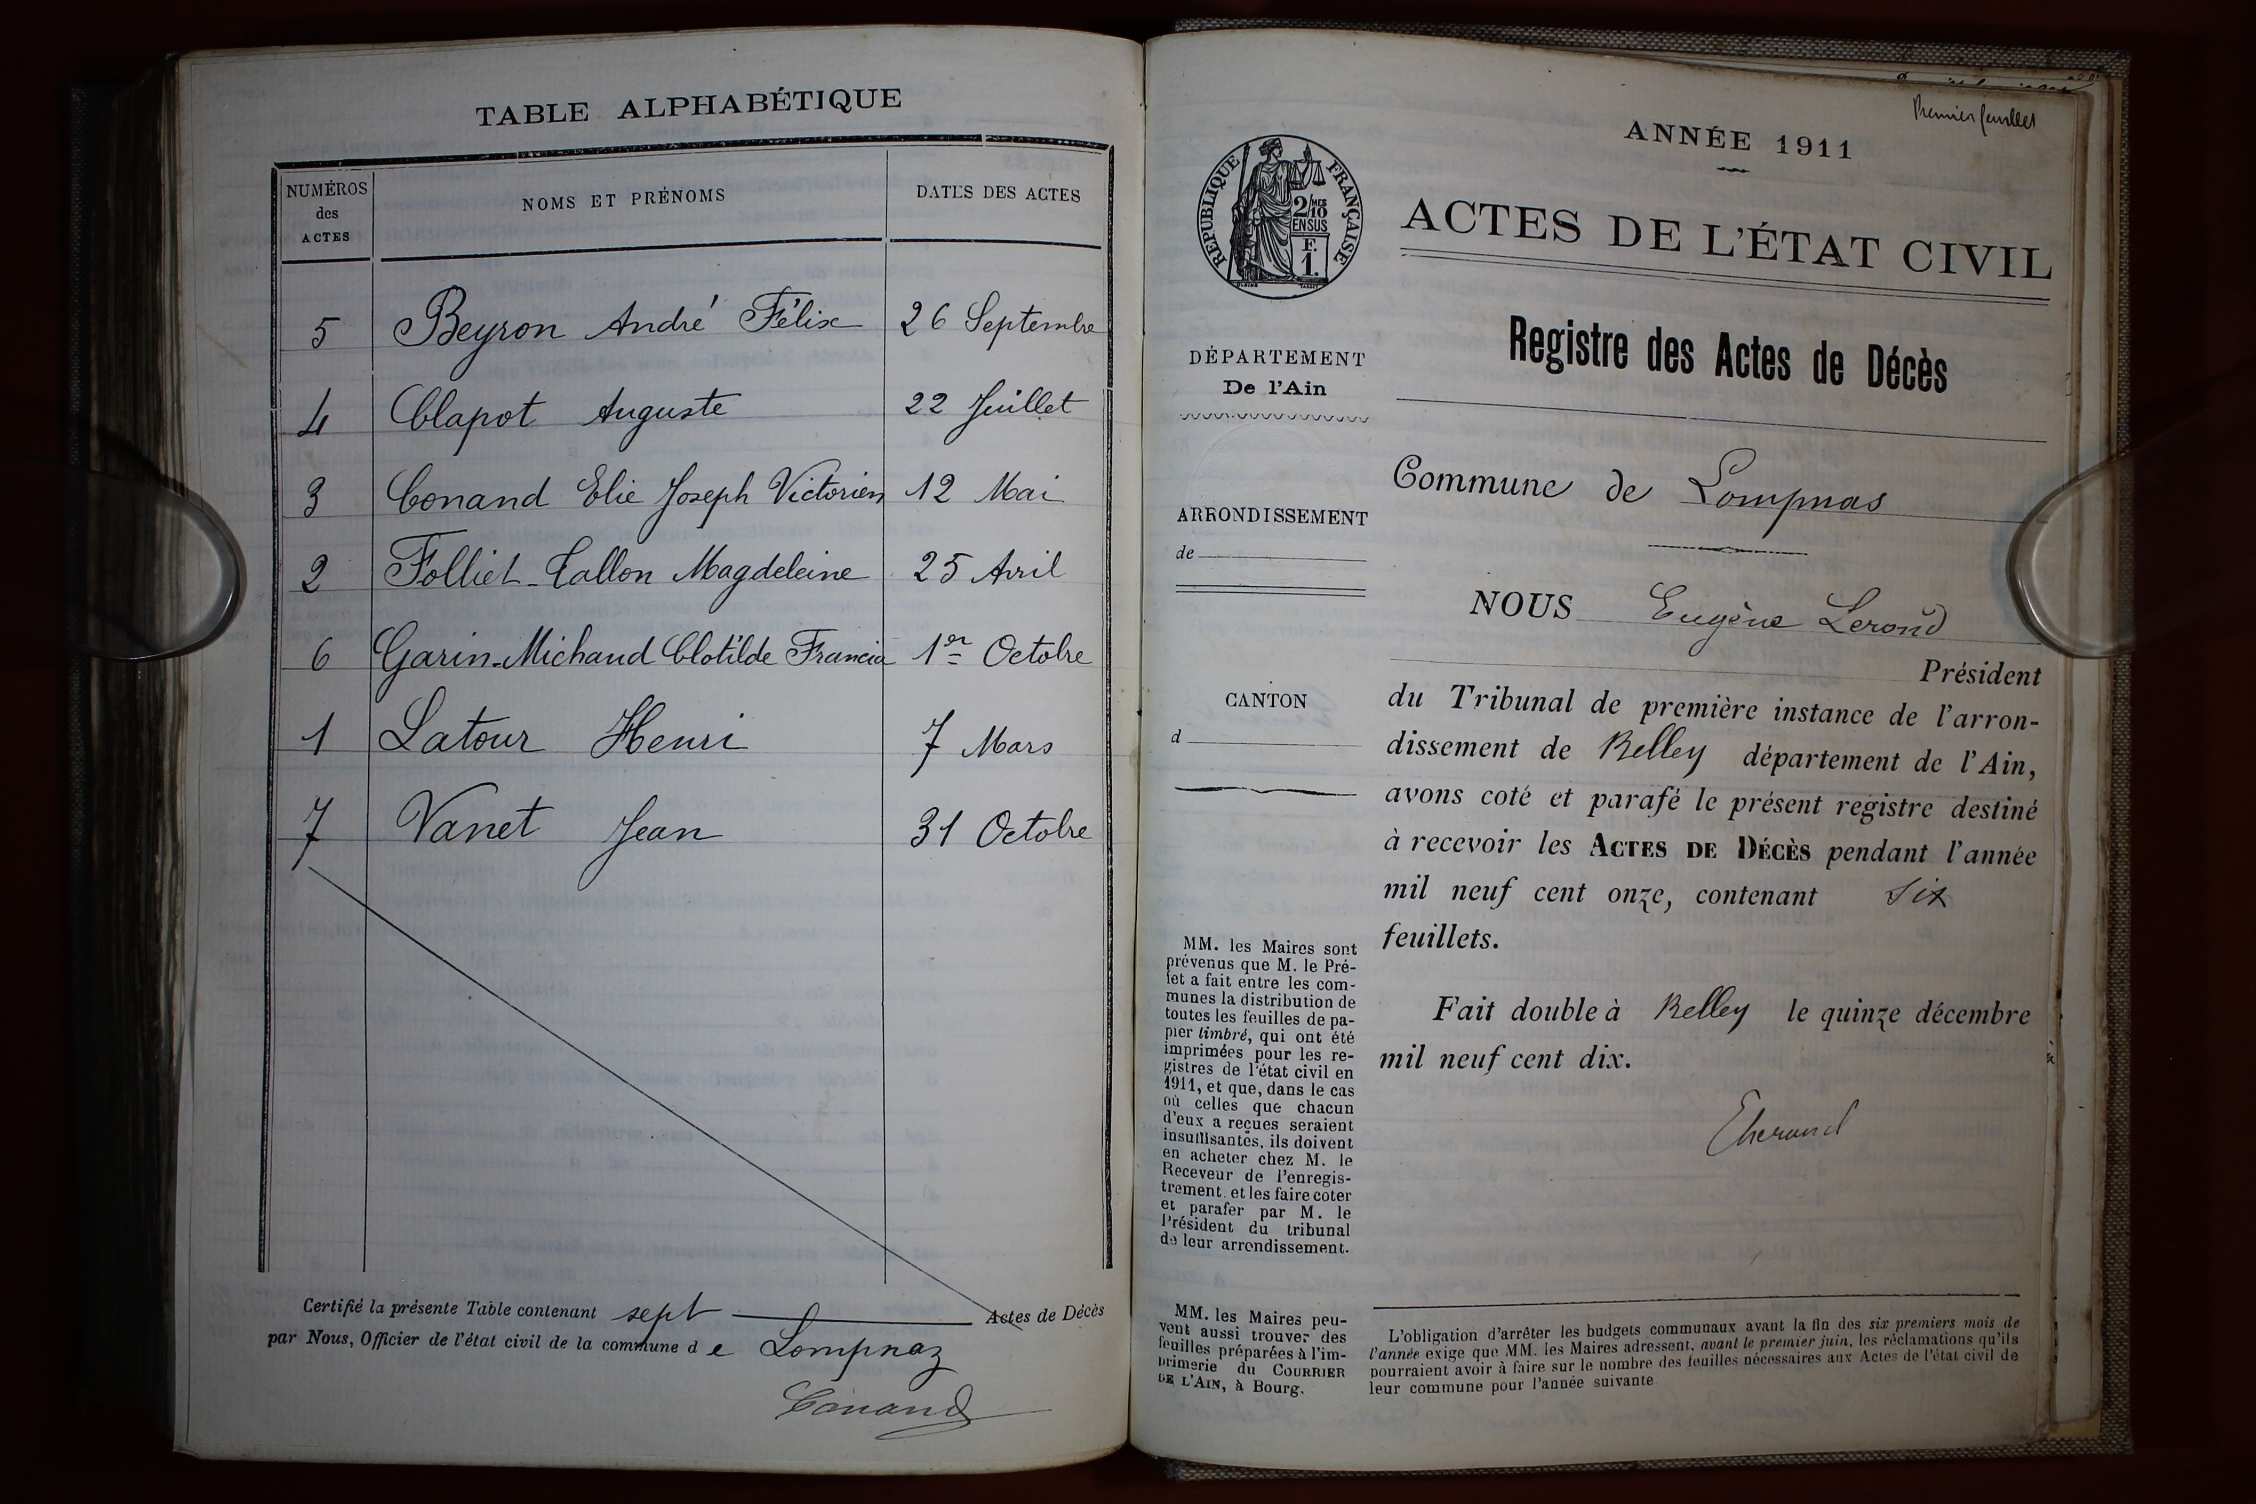 TABLE ALPHABÉTIQUE
NUMÉROS des ACTES
NOMS ET PRÉNOMS
DATES DES ACTES
5 Beyron André Félix 26 Septembre
4 Clapot Auguste 22 Juillet
3 Conand Elie Joseph Victorien 12 Mai
2 Folliet-Callon Magdeleine 25 Avril
6 Garin-Michaud Clotilde Francia 1er Octobre
1 Latour Henri 7 Mars
7 Vanet Jean 31 Octobre
Certifié la présente Table contenant sept Actes de Décès
par Nous, Officier de l'état civil de la commune de Lompnaz
Conand
Premier feuillet
ANNÉE 1911
RÉPUBLIQUE FRANÇAISE
2/10 MES
EN SUS
F.
1.
ACTES DE L'ÉTAT CIVIL
Registre des Actes de Décès
DÉPARTEMENT
De l'Ain
Commune de Lompnas
ARRONDISSEMENT
de
NOUS Eugène Lerond
Président
CANTON
d
du Tribunal de première instance de l'arron-
dissement de Belley département de l'Ain,
avons coté et parafé le présent registre destiné
à recevoir les ACTES DE DÉCÈS pendant l'année
mil neuf cent onze, contenant six
feuillets.
Fait double à Belley le quinze décembre
mil neuf cent dix.
MM. les Maires sont
prévenus que M. le Pré-
fet a fait entre les com-
munes la distribution de
toutes les feuilles de pa-
pier timbré, qui ont été
imprimées pour les re-
gistres de l'état civil en
1911, et que, dans le cas
où celles que chacun
d'eux a reçues seraient
insuffisantes, ils doivent
en acheter chez M. le
Receveur de l'enregis-
trement et les faire coter
et parafer par M. le
Président du tribunal
de leur arrondissement.
MM. les Maires peu-
vent aussi trouver des
feuilles préparées à l'im-
primerie du COURRIER
DE L'AIN, à Bourg.
L'obligation d'arrêter les budgets communaux avant la fin des six premiers mois de
l'année exige que MM. les Maires adressent, avant le premier juin, les réclamations qu'ils
pourraient avoir à faire sur le nombre des feuilles nécessaires aux Actes de l'état civil de
leur commune pour l'année suivante